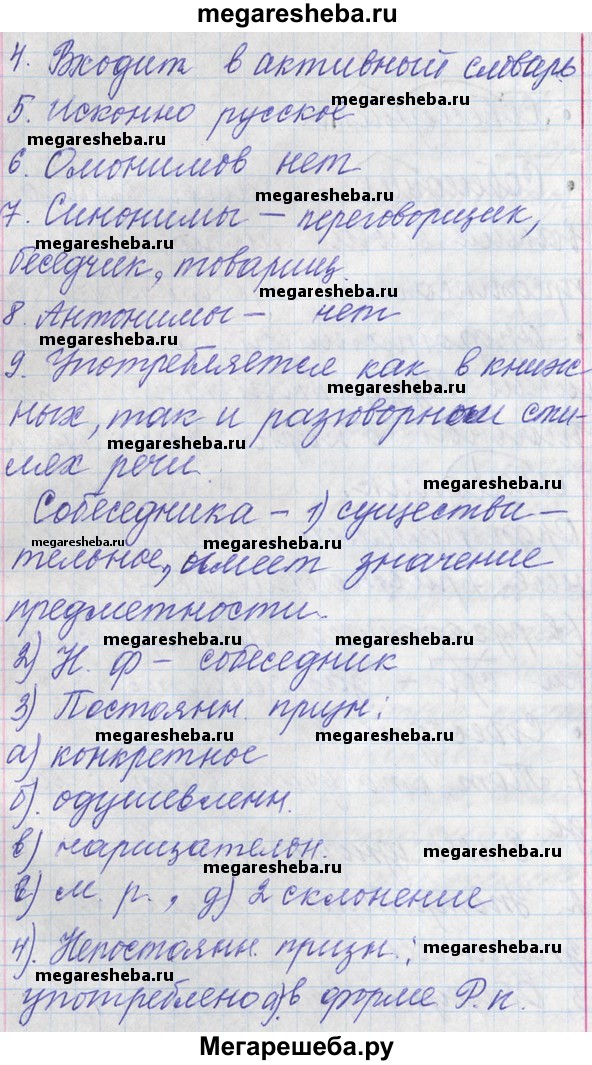 megaresheba.ru
4. Входит в активный словарь
megaresheba.ru
5. Исконно русское
megaresheba.ru
6. Омонимов нет
megaresheba.ru
7. Синонимы – переговорщик,
megaresheba.ru
беседчик, товарищ.
megaresheba.ru
8. Антонимы – нет
9. Употребляется как в книж-
megaresheba.ru
ных, так и разговорном сти-
megaresheba.ru
лях речи.
megaresheba.ru
Собеседника – 1) существи-
megaresheba.ru
megaresheba.ru
тельное, имеет значение
предметности.
megaresheba.ru
megaresheba.ru
2) Н. ф – собеседник
3) Постоянн. призн:
megaresheba.ru
megaresheba.ru
а) конкретное
б). одушевленн.
в) нарицательн.
megaresheba.ru
megaresheba.ru
г) м. р., д) 2 склонение
4). Непостоянн. призн.:
megaresheba.ru
megaresheba.ru
употреблено а) в форме Р.п.
Мегарешеба.ру